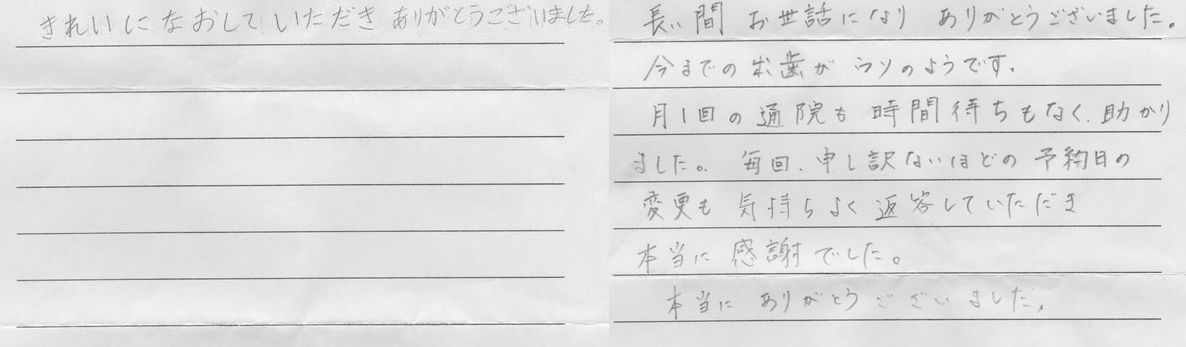 きれいになおしていただきありがとうございました。
長い間 お世話になり ありがとうございました。
今までの出歯が ウソのようです.
月1回の通院も時間待ちもなく、助かり
ました。毎回、申し訳ないほどの予約日の
変更も 気持ちよく返答していただき
本当に感謝でした。
本当に ありがとうございました。